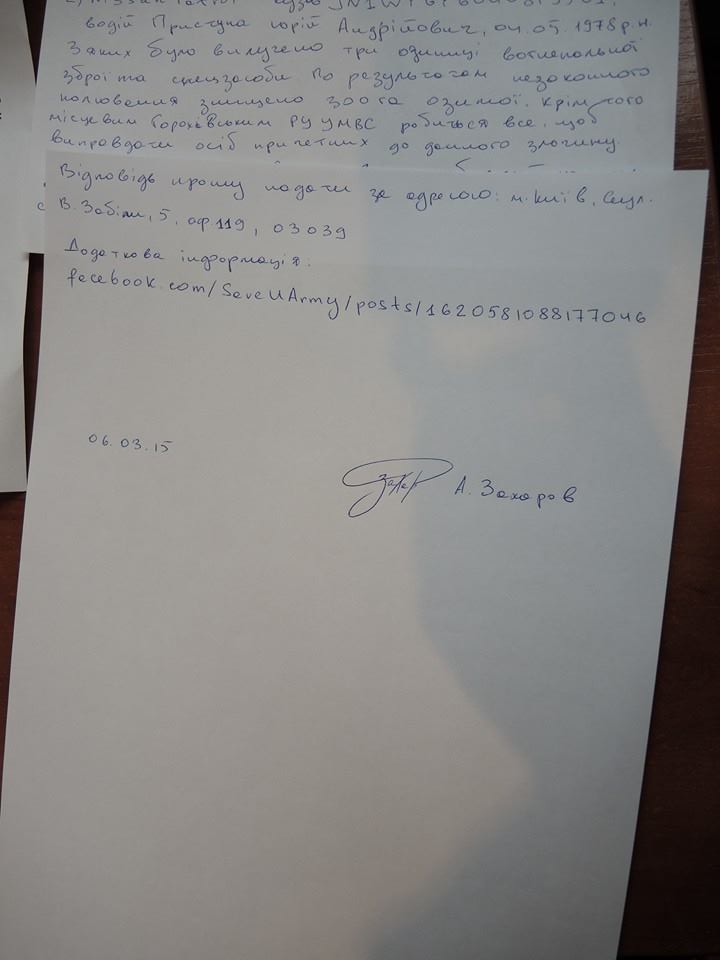 водій Приступа Юрій Андрійович, 04.05.1978 р.н.
З яких було вилучено три одиниці вогнепальної
зброї та спецзасоби По результатам незаконного
полювання знищено 300 га озимої. Крім того
місцевим Горохівським РУ УМВС робиться все, щоб
виправдати осіб причетних до даного злочину.
Відповідь прошу надати за адресою: м. Київ, вул.
В. Забіли, 5, оф. 119, 03039
Додаткова інформація:
facebook.com/SaveUArmy/posts/1620581088177046
06.03.15
А. Захаров